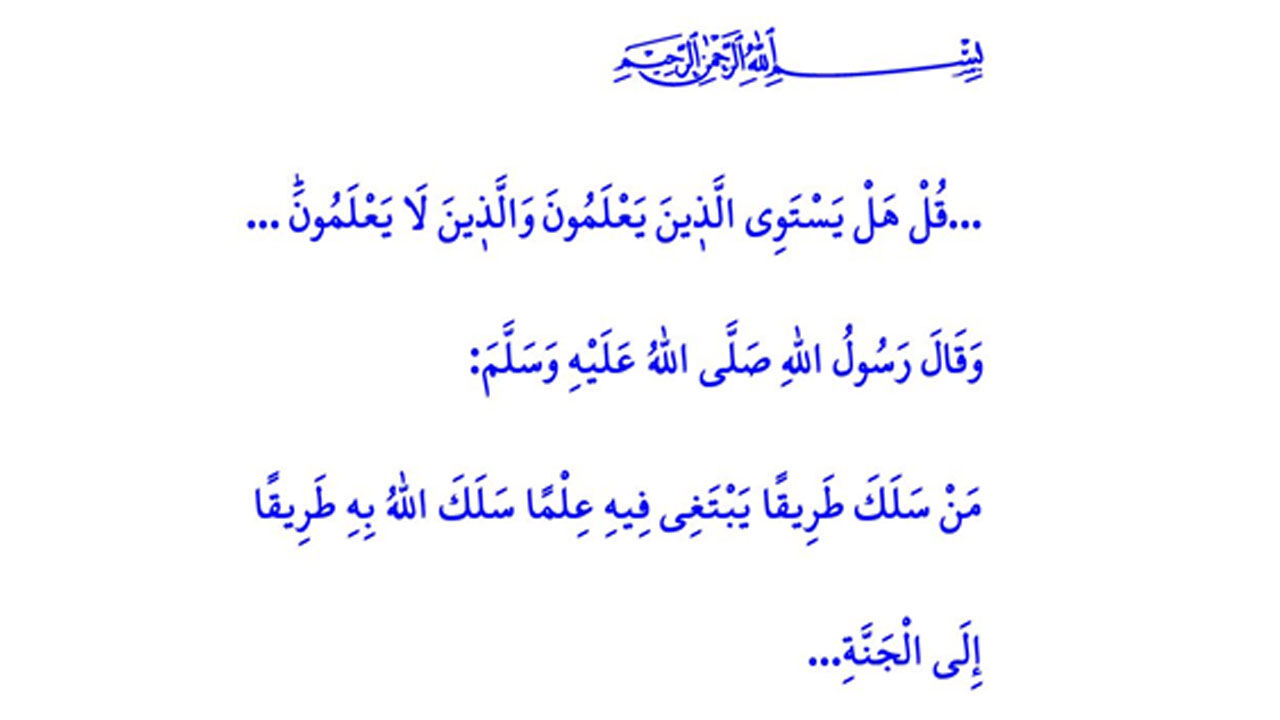 بِسْمِ اللّٰهِ الرَّحْمٰنِ الرَّحِيمِ
...قُلْ هَلْ يَسْتَوِى الَّذ۪ينَ يَعْلَمُونَ وَالَّذ۪ينَ لَا يَعْلَمُونَۜ ...
وَقَالَ رَسُولُ اللّٰهِ صَلَّى اللّٰهُ عَلَيْهِ وَسَلَّمَ:
مَنْ سَلَكَ طَرِيقًا يَبْتَغِى فِيهِ عِلْمًا سَلَكَ اللّٰهُ بِهِ طَرِيقًا
إِلَى الْجَنَّةِ...